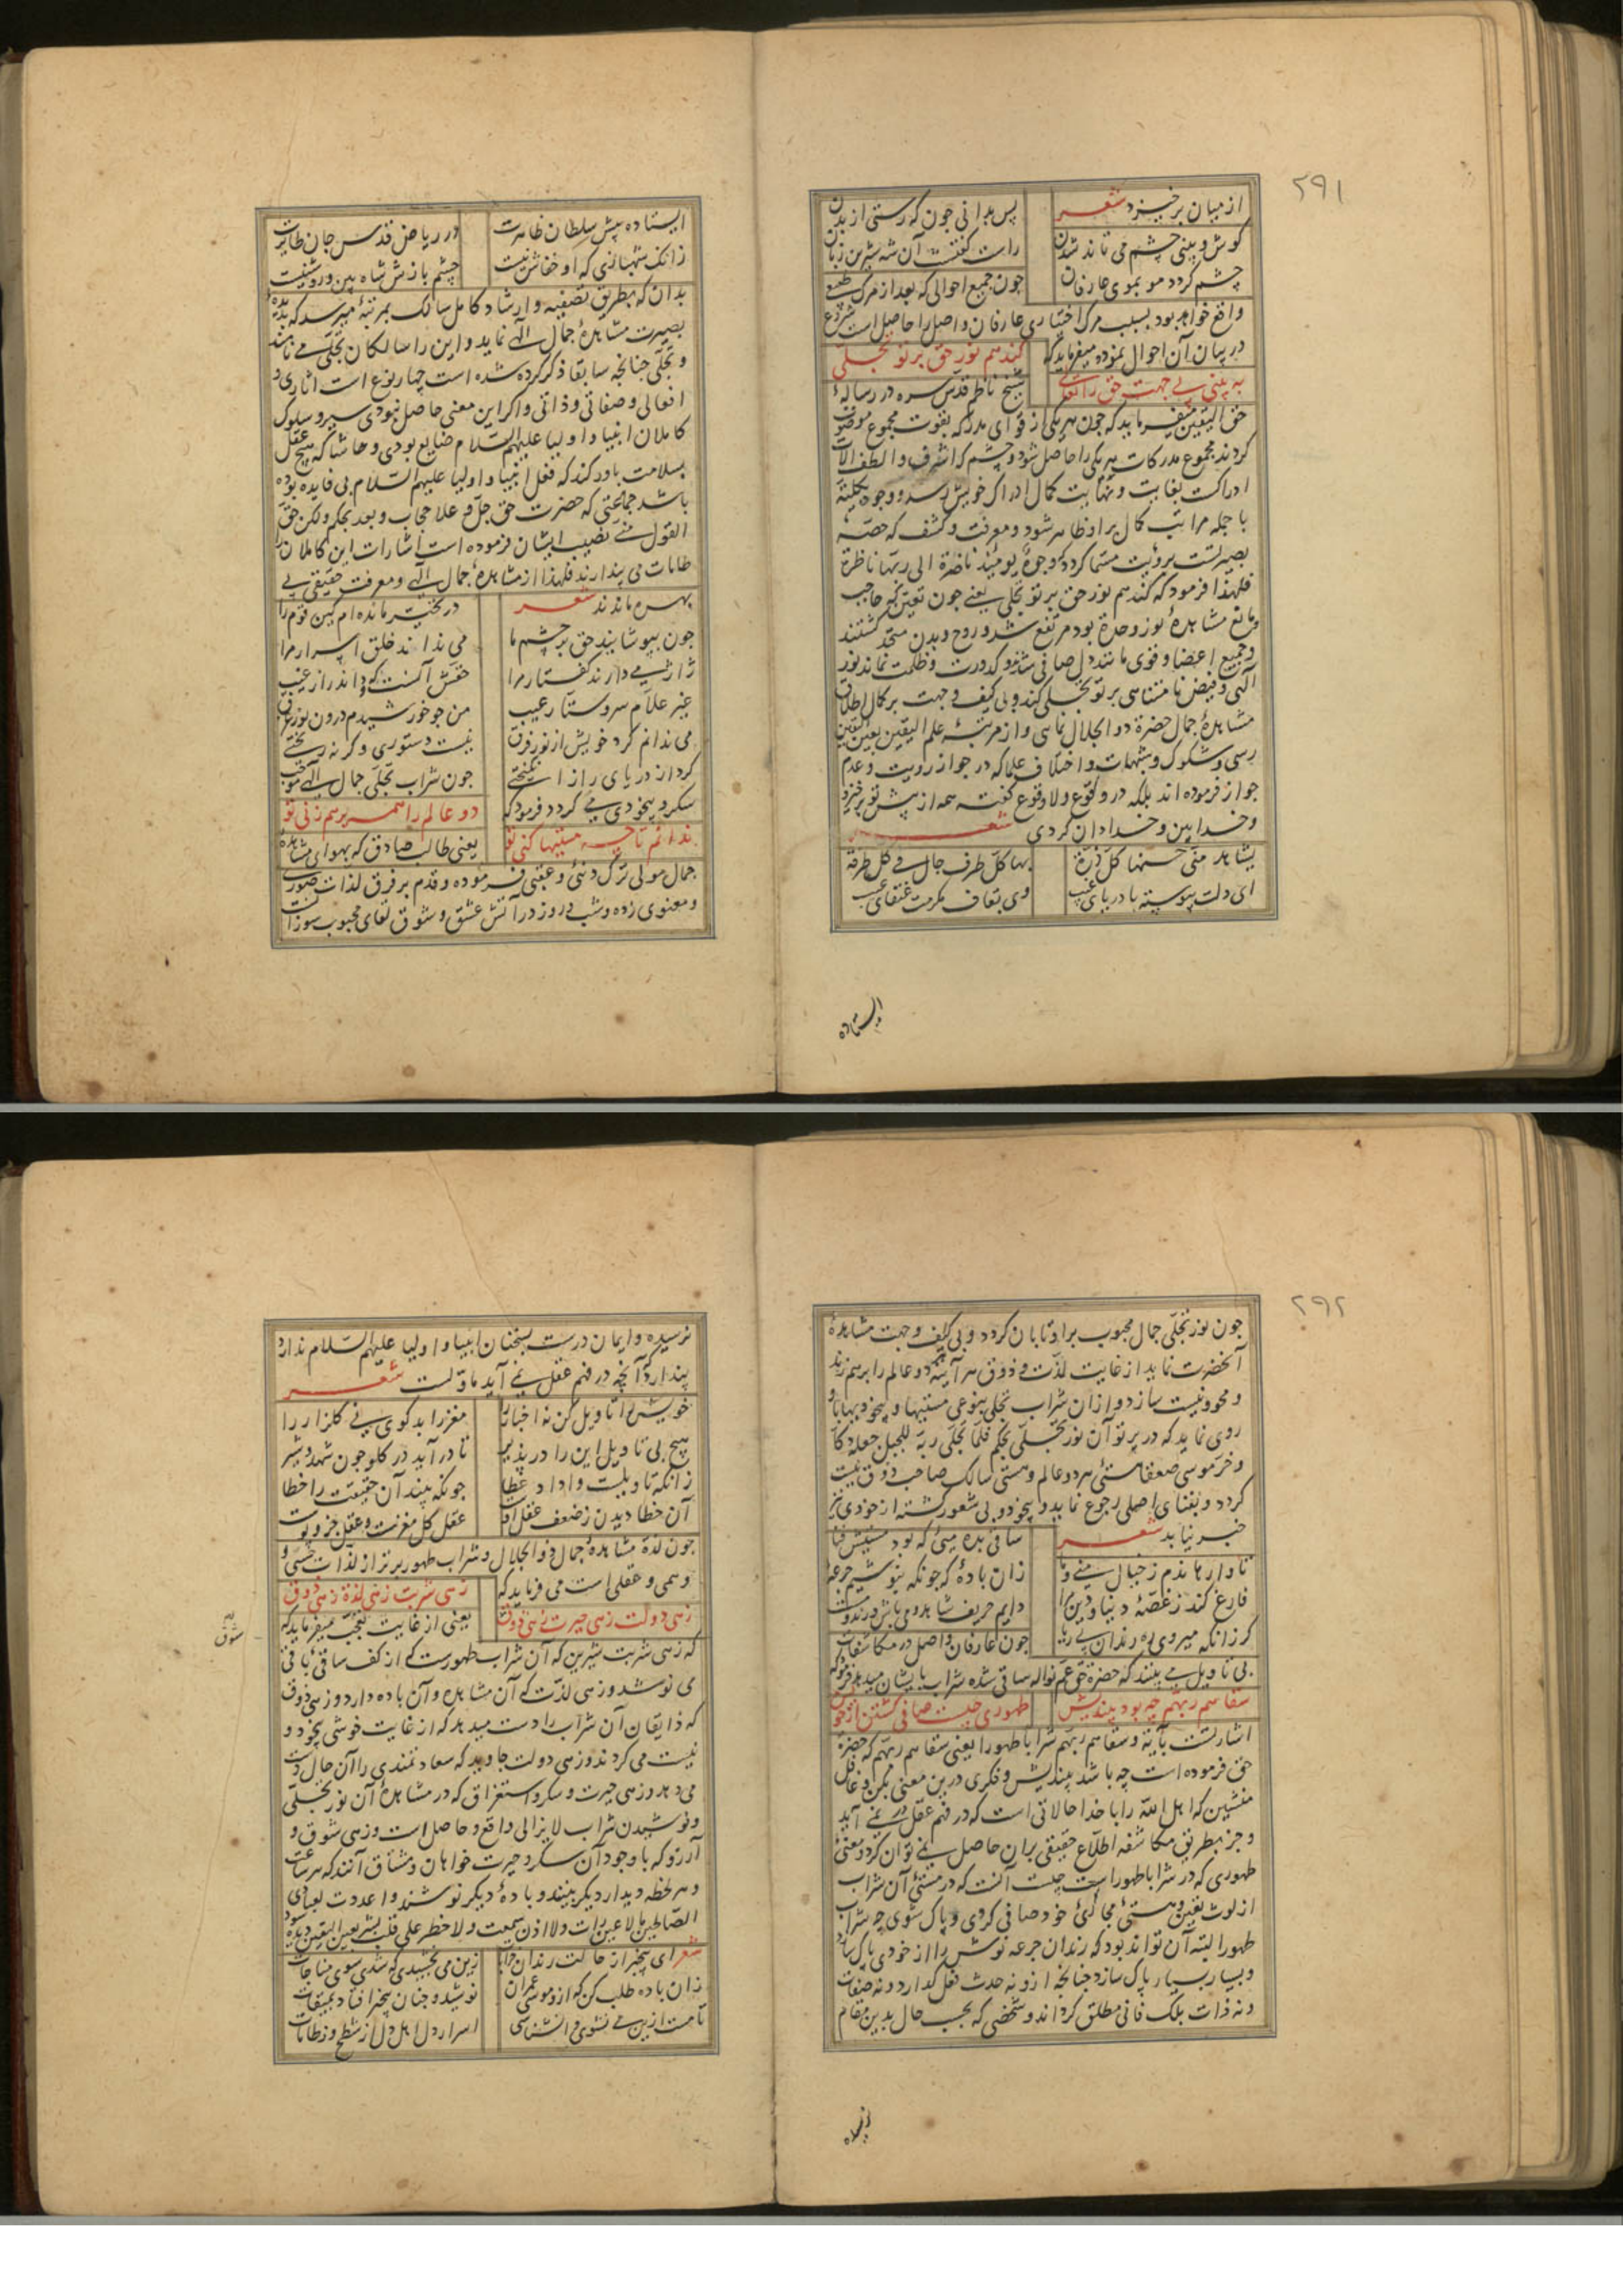 ۲۹۱
از میان برخیزد شعر پس بدانی چون که رستی از بدن
کوش و بینی چشم می تاند شدن راست گفتست آن شه شیرین زبان
چشم کردد مو بموی عارفان چون جمیع احوالی که بعد از مرک طبیعی
واقع خواهد بود بسبب مرک اختیاری عارفان واصل را حاصل است شروع
در بیان آن احوال نموده میفرماید که کند هم نور حق بر تو تجلی
به بینی بی جهت حق را تعالی شیخ ناظم قدس سره در رسالهٔ
حق الیقین میفرماید که چون هر یکی از قوای مدرکه بقوت مجموع موصوف
کردند مجموع مدرکات هر یکی را حاصل شود و چشم که اشرف و الطف آلات
ادراکست بغایت و نهایت کمال ادراک خویش رسد و وجوه کلیه
با جمله مراتب کمال بر او ظاهر شود و معرفت و کشف که حصهٔ
بصیرتست برؤیت مسما کردد که وجوه یومئذ ناضرة الی ربها ناظرة
فلهذا فرمود که کند هم نور حق بر تو تجلی یعنی چون تعین که حاجب
و مانع مشاهدهٔ نور وحدة بود مرتفع شد و روح و بدن متحد کشتند
و جمیع اعضا و قوی مانند دل صافی شدند و کدورت و ظلمت نماند نور
الهی و فیض نامتناهی بر تو تجلی کند و بی کیف و جهت بر کمال اطلاق
مشاهدهٔ جمال حضرة ذو الجلال نمایی و از مرتبهٔ علم الیقین بعین الیقین
رسی و شکوک و شبهات و اختلاف علما که در جواز رویت و عدم
جواز فرموده اند بلکه در وقوع و لاوقوع گفته همه از پیش تو برخیزد
و خدا بین و خدا دان کردی شعر
یشاهد منی حسنها کل ذرة بها کل طرف جال فی کل طرفة
ای دلت پیوسته با دریای غیب وی بقاف مکرمت عنقای غیب
ایستاده
ایستاده پیش سلطان ظاهرت در ریاض قدس جان طایرت
زانک شهبازی که او خفاش نیست چشم بازش شاه بین و روشنیست
بدان که بطریق تصفیه و ارشاد کامل سالک بمرتبهٔ میرسد که بدیدهٔ
بصیرت مشاهدهٔ جمال الهی نماید و این را سالکان تجلی می نامند
و تجلی چنانچه سابقا ذکر کرده شده است چهار نوع است آثاری و
افعالی و صفاتی و ذاتی و اکر این معنی حاصل نبودی سیر و سلوک
کاملان انبیا و اولیا علیهم السلام ضایع بودی و حاشا که هیچ عقل
بسلامت باور کند که فعل انبیا و اولیا علیهم السلام بی فایده بوده
باشد جماعتی که حضرت حق جل و علا حجاب و بعد بحکم و لکن حق
القول منی نصیب ایشان فرموده است اشارات این کاملان را
طامات می پندارند فلهذا از مشاهدهٔ جمال الهی و معرفت حقیقی بی
بهره ماندند شعر در تحیر مانده ام کین قوم را
چون بپوشانید حق بر چشم ما می ندانند خلق اسرار مرا
ژاژ می دارند کفتار مرا حقش آنست که داند راز غیب
غیر علام سر و ستار عیب من چو خورشیدم درون نور غرق
می ندانم کرد خویش از نور فرق نیست دستوری و کر نه ریختی
کرد از دریای راز انکیختی چون شراب تجلی جمال الهی موجب
سکر و بیخودی می کردد فرمود که دو عالم را همه بر هم زنی تو
ندانم تا چه مستیها کنی تو یعنی طالب صادق که بهوای مشاهدهٔ
جمال مولی ترک دنیی و عقبی فرموده و قدم بر فرق لذات صوری
و معنوی زده و شب و روز در آتش عشق و شوق لقای محبوب سوزانست
۲۹۲
چون نور تجلی جمال محبوب بر او تابان کردد و بی کیف و جهت مشاهدهٔ
آنحضرت نماید از غایت لذت و ذوق هر آینه دو عالم را بر هم زند
و محو و نیست سازد و از آن شراب تجلی بنوعی مستیها و بیخودیها باو
روی نماید که در پرتو آن نور تجلی بحکم فلما تجلی ربه للجبل جعله دکا
و خر موسی صعقا هستی هر دو عالم و هستی سالک صاحب ذوق نیست
کردد و بفنای اصلی رجوع نماید و بیخود و بی شعور کشته از خودی نیز
خبر نیابد شعر ساقی بده میی که بود مستیش فنا
تا وارهاندم ز خیال منی و ما زان بادهٔ که چونکه بنوشیم جرعهٔ
فارغ کند ز غصهٔ دنیا و دین مرا دایم حریف شاهد و می باش و رند و مست
کر زانکه میروی ره رندان بی ریا چون عارفان واصل در مکاشفات
بی تاویل می بینند که حضرة حق عم نواله ساقی شده شراب بایشان میدهد فرمود که
سقاهم ربهم چه بود بیندیش طهوری چیست صافی کشتن از خویش
اشارتست بآیهٔ و سقاهم ربهم شرابا طهورا یعنی سقاهم ربهم که حضرة
حق فرموده است چه باشد بیندیش و فکری درین معنی بکن و غافل
منشین که اهل الله را با خدا حالاتی است که در فهم عقل در نمی آید
و جز بطریق مکاشفه اطلاع حقیقی بر آن حاصل نمی توان کرد و معنی
طهوری که در شرابا طهورا است چیست آنست که در مستی آن شراب
از لوث تعین و هستی مجازی خود صافی کردی و پاک شوی چه شراب
طهورا البته آن تواند بود که رندان جرعه نوش را از خودی پاک سازد
و بسیار بسیار پاک سازد چنانچه ازو نه حدث فعل گذارد و نه صفات
و نه ذات بلک فانی مطلق کرداند و شخصی که بحسب حال بدین مقام
نرسیده
نرسیده و ایمان درست بسخنان انبیا و اولیا علیهم السلام ندارد
پندارد که آنچه در فهم عقل نمی آید ماولست شعر
خویش را تاویل کن نه اخبار را مغز را بد کوی نی کلزار را
هیچ بی تاویل این را در پذیر تا در آید در کلو چون شهد و شیر
زانکه تاویلست وا داد عطا چونکه بیند آن حقیقت را خطا
آن خطا دیدن ز ضعف عقل اوست عقل کل مغزست و عقل جزو پوست
چون لذة مشاهدهٔ جمال ذو الجلال و شراب طهور برتر از لذات حسی و
وهمی و عقلی است می فرماید که زهی شربت زهی لذة زهی ذوق
زهی دولت زهی حیرت زهی شوق یعنی از غایت تعجب میفرماید که
زهی شوق
که زهی شربت شیرین که آن شراب طهورست که از کف ساقی باقی
می نوشد و زهی لذت که آن مشاهده و آن باده دارد و زهی ذوق
که ذایقان آن شراب را دست میدهد که از غایت خوشی بیخود و
نیست می کردند و زهی دولت جاوید که سعادتمندی را آن حال دست
می دهد و زهی حیرت و سکر و استغراق که در مشاهدهٔ آن نور تجلی
و نوشیدن شراب لایزالی واقع و حاصل است و زهی شوق و
آرزو که با وجود آن سکر و حیرت خواهان و مشتاق آنند که هر ساعت
و هر لحظه دیدار دیکر بینند و بادهٔ دیکر نوشند و اعددت لعبادی
الصالحین ما لا عین رات و لا اذن سمعت و لا خطر علی قلب بشر بعین الیقین دیده شود
شعر ای بیخبر از حالت رندان خرابات زین می نچشیدی که شدی سوی مناجات
زان باده طلب کن که ازو موسی عمران نوشید و چنان بیخبر افتاد بمیقات
تا مست ازین می نشوی وا نشناسی اسرار دل اهل دل از شطح و ز طامات